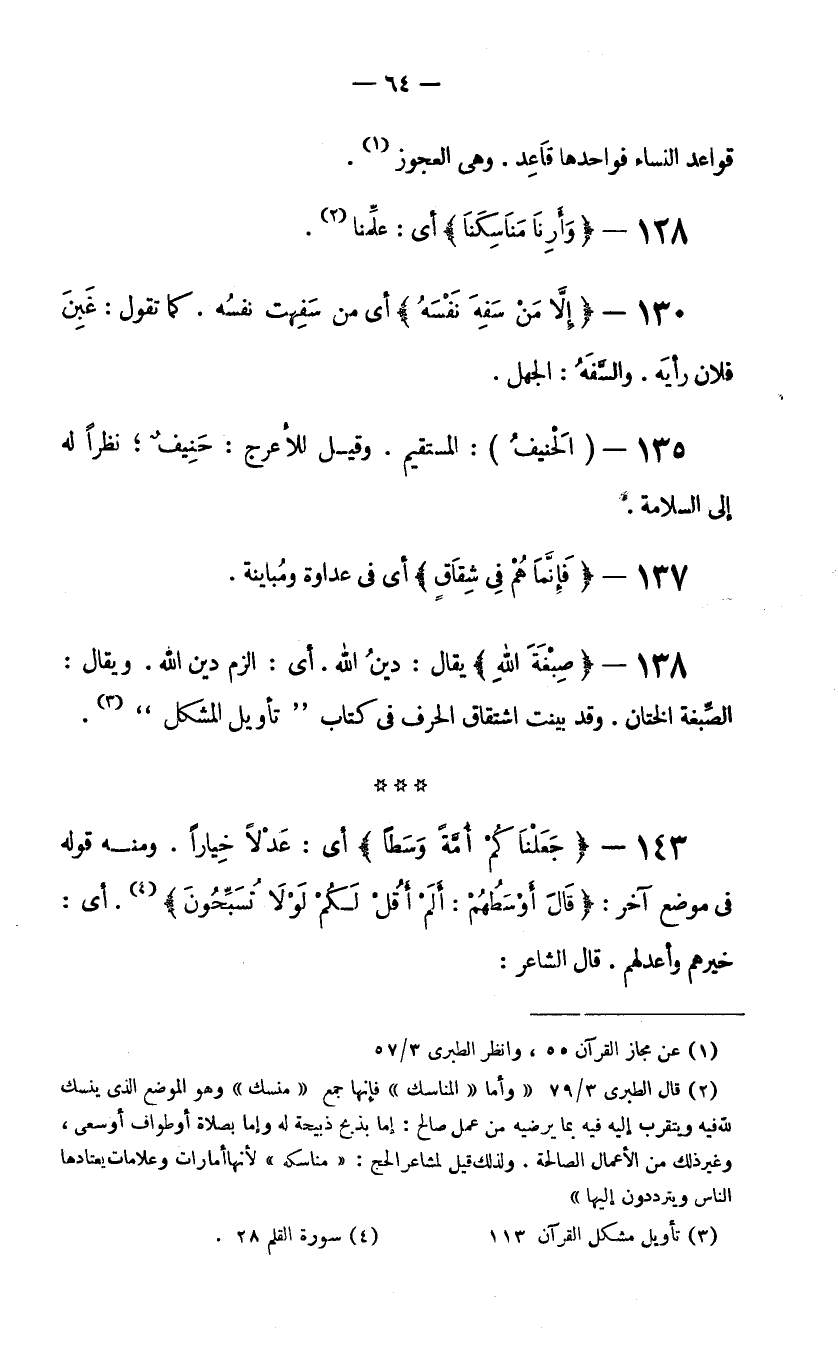 — ٦٤ —
قواعد النساء فواحدها قَاعِد . وهى العجوز (١) .
١٢٨ — ﴿ وَأَرِنَا مَنَاسِكَنَا ﴾ أى : علِّمنا (٢) .
١٣٠ — ﴿ إِلَّا مَنْ سَفِهَ نَفْسَهُ ﴾ أى من سَفِهت نفسُه . كما تقول : غَبِنَ
فلان رأيَه . والسَّفَهُ : الجهل .
١٣٥ — ( الْحَنيفُ ) : المستقيم . وقيل للأعرج : حَنِيفٌ ؛ نظراً له
إلى السلامة .
١٣٧ — ﴿ فَإِنَّمَا هُمْ فِي شِقَاقٍ ﴾ أى فى عداوة ومُباينة .
١٣٨ — ﴿ صِبْغَةَ اللهِ ﴾ يقال : دينُ الله . أى : الزم دين الله . ويقال :
الصِّبغة الختان . وقد بينت اشتقاق الحرف فى كتاب ” تأويل المشكل “ (٣) .
* * *
١٤٣ — ﴿ جَعَلْنَاكُمْ أُمَّةً وَسَطاً ﴾ أى : عَدْلاً خِياراً . ومنـه قوله
فى موضع آخر : ﴿ قَالَ أَوْسَطُهُمْ : أَلَمْ أَقُلْ لَـكُمْ لَوْلَا تُسَبِّحُونَ ﴾ (٤) . أى :
خيرهم وأعدلهم . قال الشاعر :
(١) عن مجاز القرآن ٥٥ ، وانظر الطبرى ٥٧/٣
(٢) قال الطبرى ٧٩/٣ « وأما « المناسك » فإنها جمع « منسك » وهو الموضع الذى ينسك
لله فيه ويتقرب إليه فيه بما يرضيه من عمل صالح : إما بذبح ذبيحة له وإما بصلاة أو طواف أو سعى ،
وغير ذلك من الأعمال الصالحة . ولذلك قيل لمشاعر الحج : « مناسكه » لأنها أمارات وعلامات يعتادها
الناس ويترددون إليها »
(٣) تأويل مشكل القرآن ١١٣ (٤) سورة القلم ٢٨ .